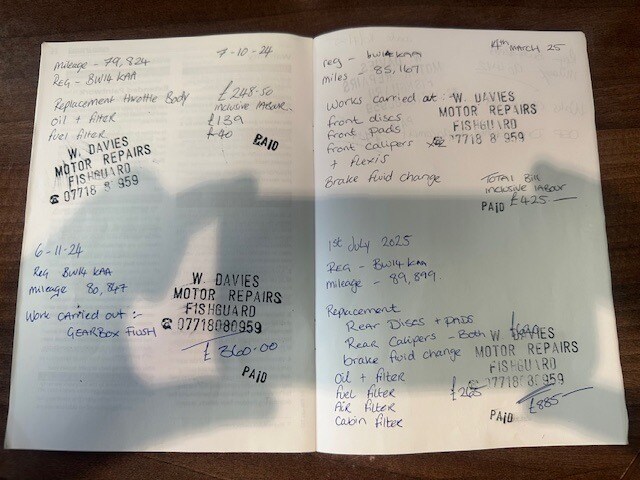 7-10-24
Mileage - 79,824
REG - BW14 KAA
Replacement throttle Body £248.50
inclusive labour..
Oil + filter £139
fuel filter £40
PAID
W. DAVIES
MOTOR REPAIRS
FISHGUARD
☎ 07718 8 959
6-11-24
REG BW14 KAA
Mileage 80,847
Work carried out :-
GEARBOX FLUSH
W DAVIES
MOTOR REPAIRS
FISHGUARD
☎ 07718080959
£360.00
PAID
14th MARCH 25
reg - BW14KAA
miles - 85,167
Works carried out :
front discs
front pads
front calipers x2
+ flexis
Brake fluid change
W. DAVIES
MOTOR REPAIRS
FISHGUARD
07718 8 959
TOTAL Bill
inclusive labour
PAID £425 —
1st July 2025
REG - BW14 KAA
Mileage - 89,899
Replacement
Rear Discs + PADS
Rear Calipers - Both
brake fluid change
W DAVIES
MOTOR REPAIRS
FISHGUARD
07718 8 959
Oil + filter
fuel filter £265
Air filter
Cabin filter
£885-
PAID